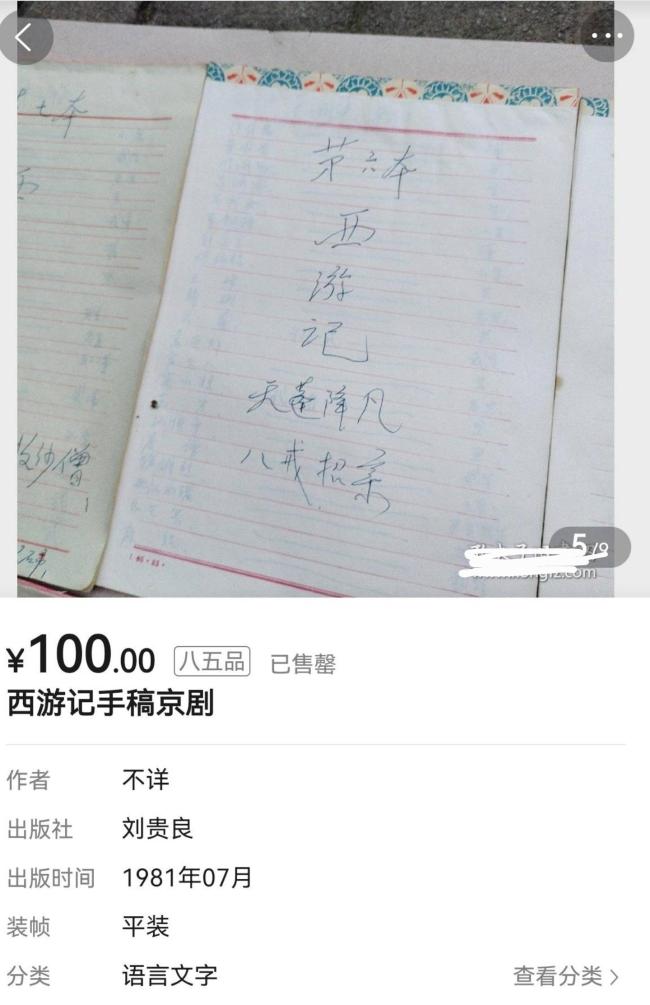 七本
第六本
西
游
记
天蓬降凡
八戒招亲
收沙僧
5/9
¥100.00 八五品 已售罄
西游记手稿京剧
作者 不详
出版社 刘贵良
出版时间 1981年07月
装帧 平装
分类 语言文字 查看分类